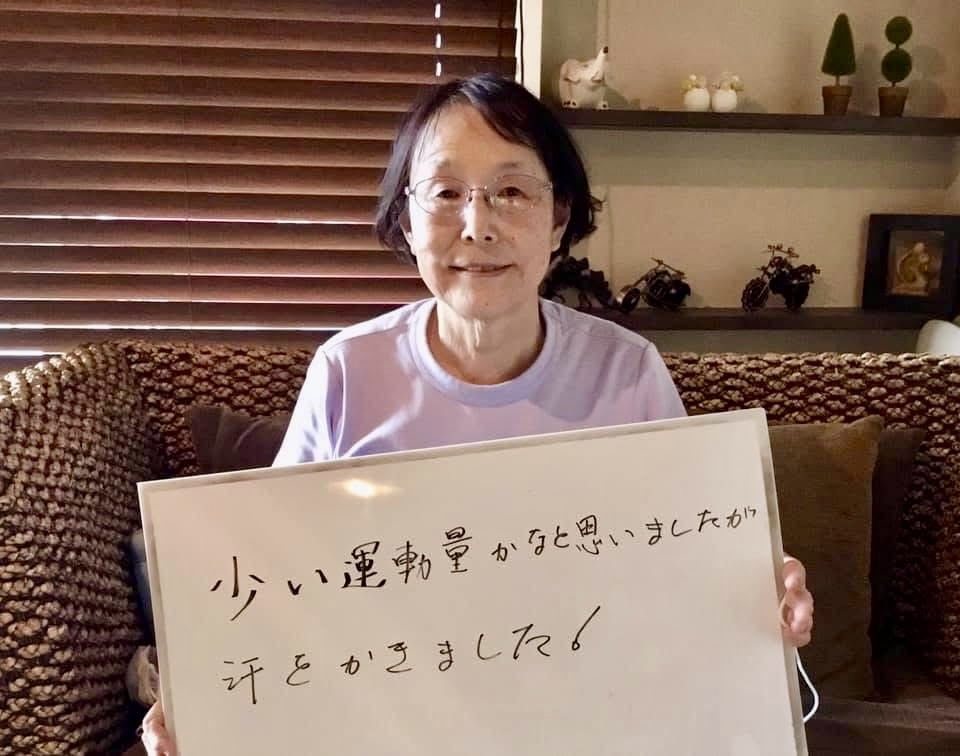 少い運動量かなと思いましたが
汗をかきました!